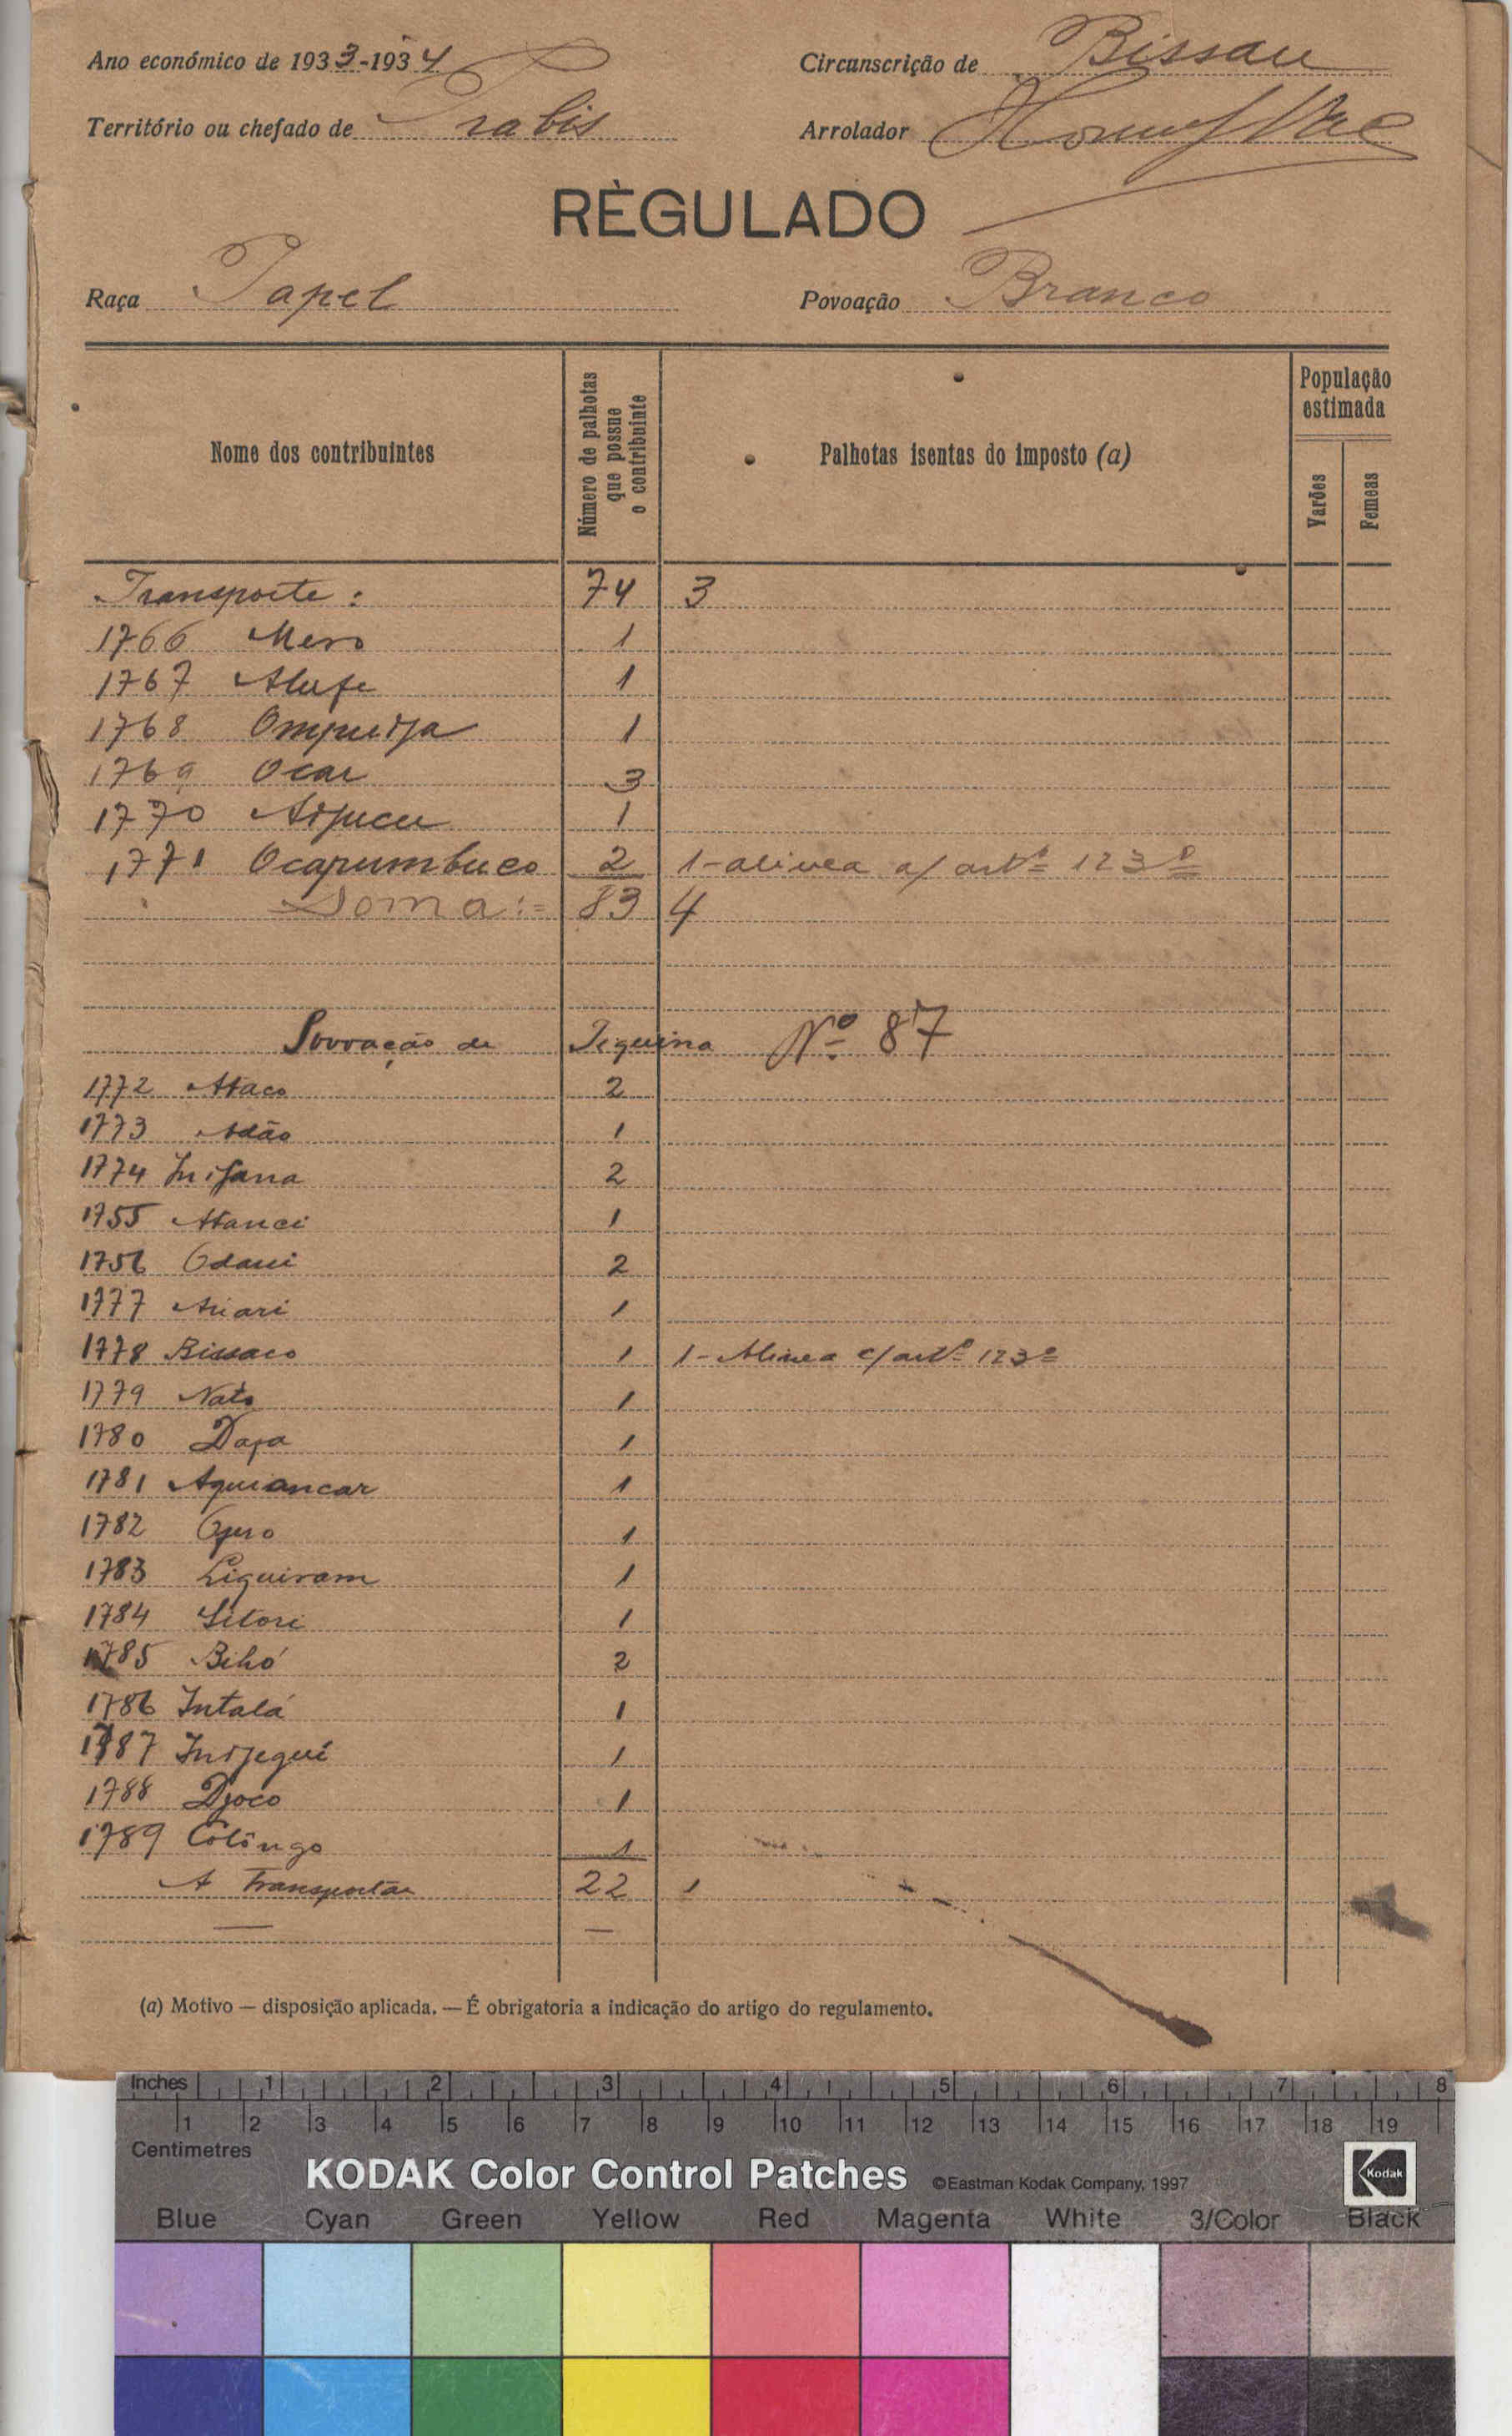 Ano económico de 1933-1934 Circunscrição de Bissau
Território ou chefado de Prabis Arrolador
RÈGULADO
Raça Papel Povoação Branco
Nome dos contribuintes Número de palhotas que possue o contribuinte Palhotas isentas do imposto (a) População estimada
Varões Femeas
Transporte : 74 3
1766 Mero 1
1767 Alufe 1
1768 1
1769 Ocar 3
1770 1
1771 Ocapumbuco 2 1-alinea a/ artº 123º
Soma := 83 4
Povoação de Pequina Nº 87
1772 Ataco 2
1773 Adão 1
1774 2
1755 Atanci 1
1756 Odaui 2
1777 1
1778 Bissaco 1 1-Alinea c/artº 123º
1779 Nato 1
1780 Dapa 1
1781 Aquiancar 1
1782 1
1783 Liguiram 1
1784 Sitori 1
1785 Bihó 2
1786 Intalá 1
1787 1
1788 Djoco 1
1789 Colôngo 1
A Transportar 22 1
(a) Motivo — disposição aplicada. — É obrigatoria a indicação do artigo do regulamento.
Inches 1 2 3 4 5 6 7 8
1 2 3 4 5 6 7 8 9 10 11 12 13 14 15 16 17 18 19
Centimetres
KODAK Color Control Patches ©Eastman Kodak Company, 1997 Kodak
Blue Cyan Green Yellow Red Magenta White 3/Color Black